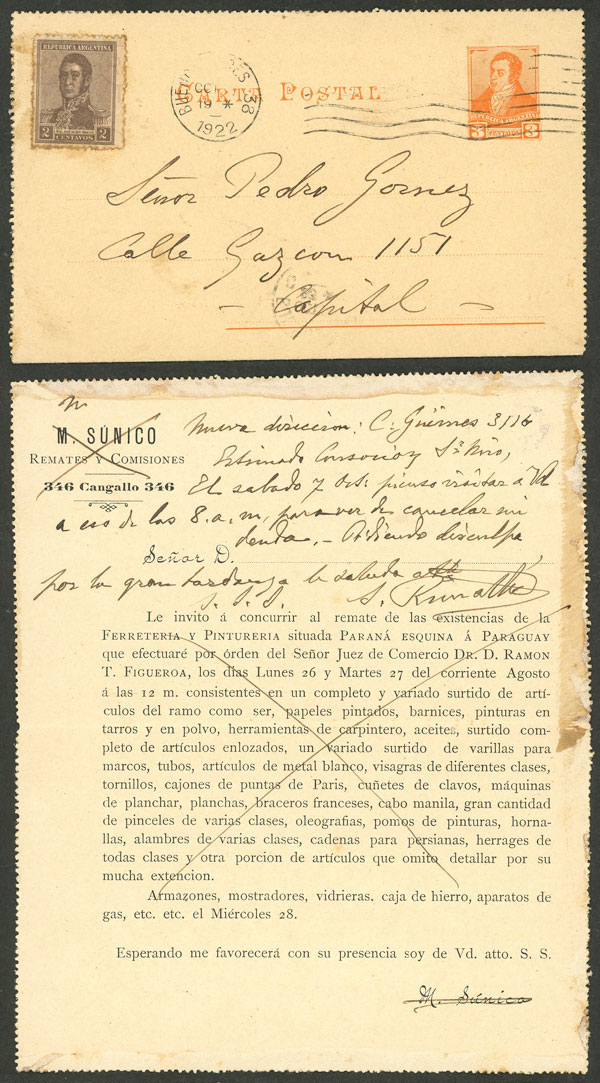 REPUBLICA ARGENTINA
2 CENTAVOS 2
BUENOS AIRES 38
OC
19 *
1922
CARTA POSTAL
3 CENTAVOS 3
Señor Pedro Gomez
Calle Gazcon 1151
- Capital -
M. SÚNICO
REMATES Y COMISIONES
346 Cangallo 346
Nueva direccion: C. Güemes 3116
Estimado Consocio y Sr. mio,
El sabado 7 Oct. pienso visitar a Vd
a eso de las 8. a. m, para ver de cancelar mi
deuda, - Pidiendo disculpa
Señor D.
por la gran tardanza le saluda atte
S. S. S.
Le invito á concurrir al remate de las existencias de la
FERRETERIA Y PINTURERIA situada PARANÁ ESQUINA Á PARAGUAY
que efectuaré por órden del Señor Juez de Comercio DR. D. RAMON
T. FIGUEROA, los dias Lunes 26 y Martes 27 del corriente Agosto
á las 12 m. consistentes en un completo y variado surtido de artí-
culos del ramo como ser, papeles pintados, barnices, pinturas en
tarros y en polvo, herramientas de carpintero, aceites, surtido com-
pleto de artículos enlozados, un variado surtido de varillas para
marcos, tubos, artículos de metal blanco, visagras de diferentes clases,
tornillos, cajones de puntas de Paris, cuñetes de clavos, máquinas
de planchar, planchas, braceros franceses, cabo manila, gran cantidad
de pinceles de varias clases, oleografias, pomos de pinturas, horna-
llas, alambres de varias clases, cadenas para persianas, herrages de
todas clases y otra porcion de artículos que omito detallar por su
mucha extencion.
Armazones, mostradores, vidrieras. caja de hierro, aparatos de
gas, etc. etc. el Miércoles 28.
Esperando me favorecerá con su presencia soy de Vd. atto. S. S.
M. Súnico